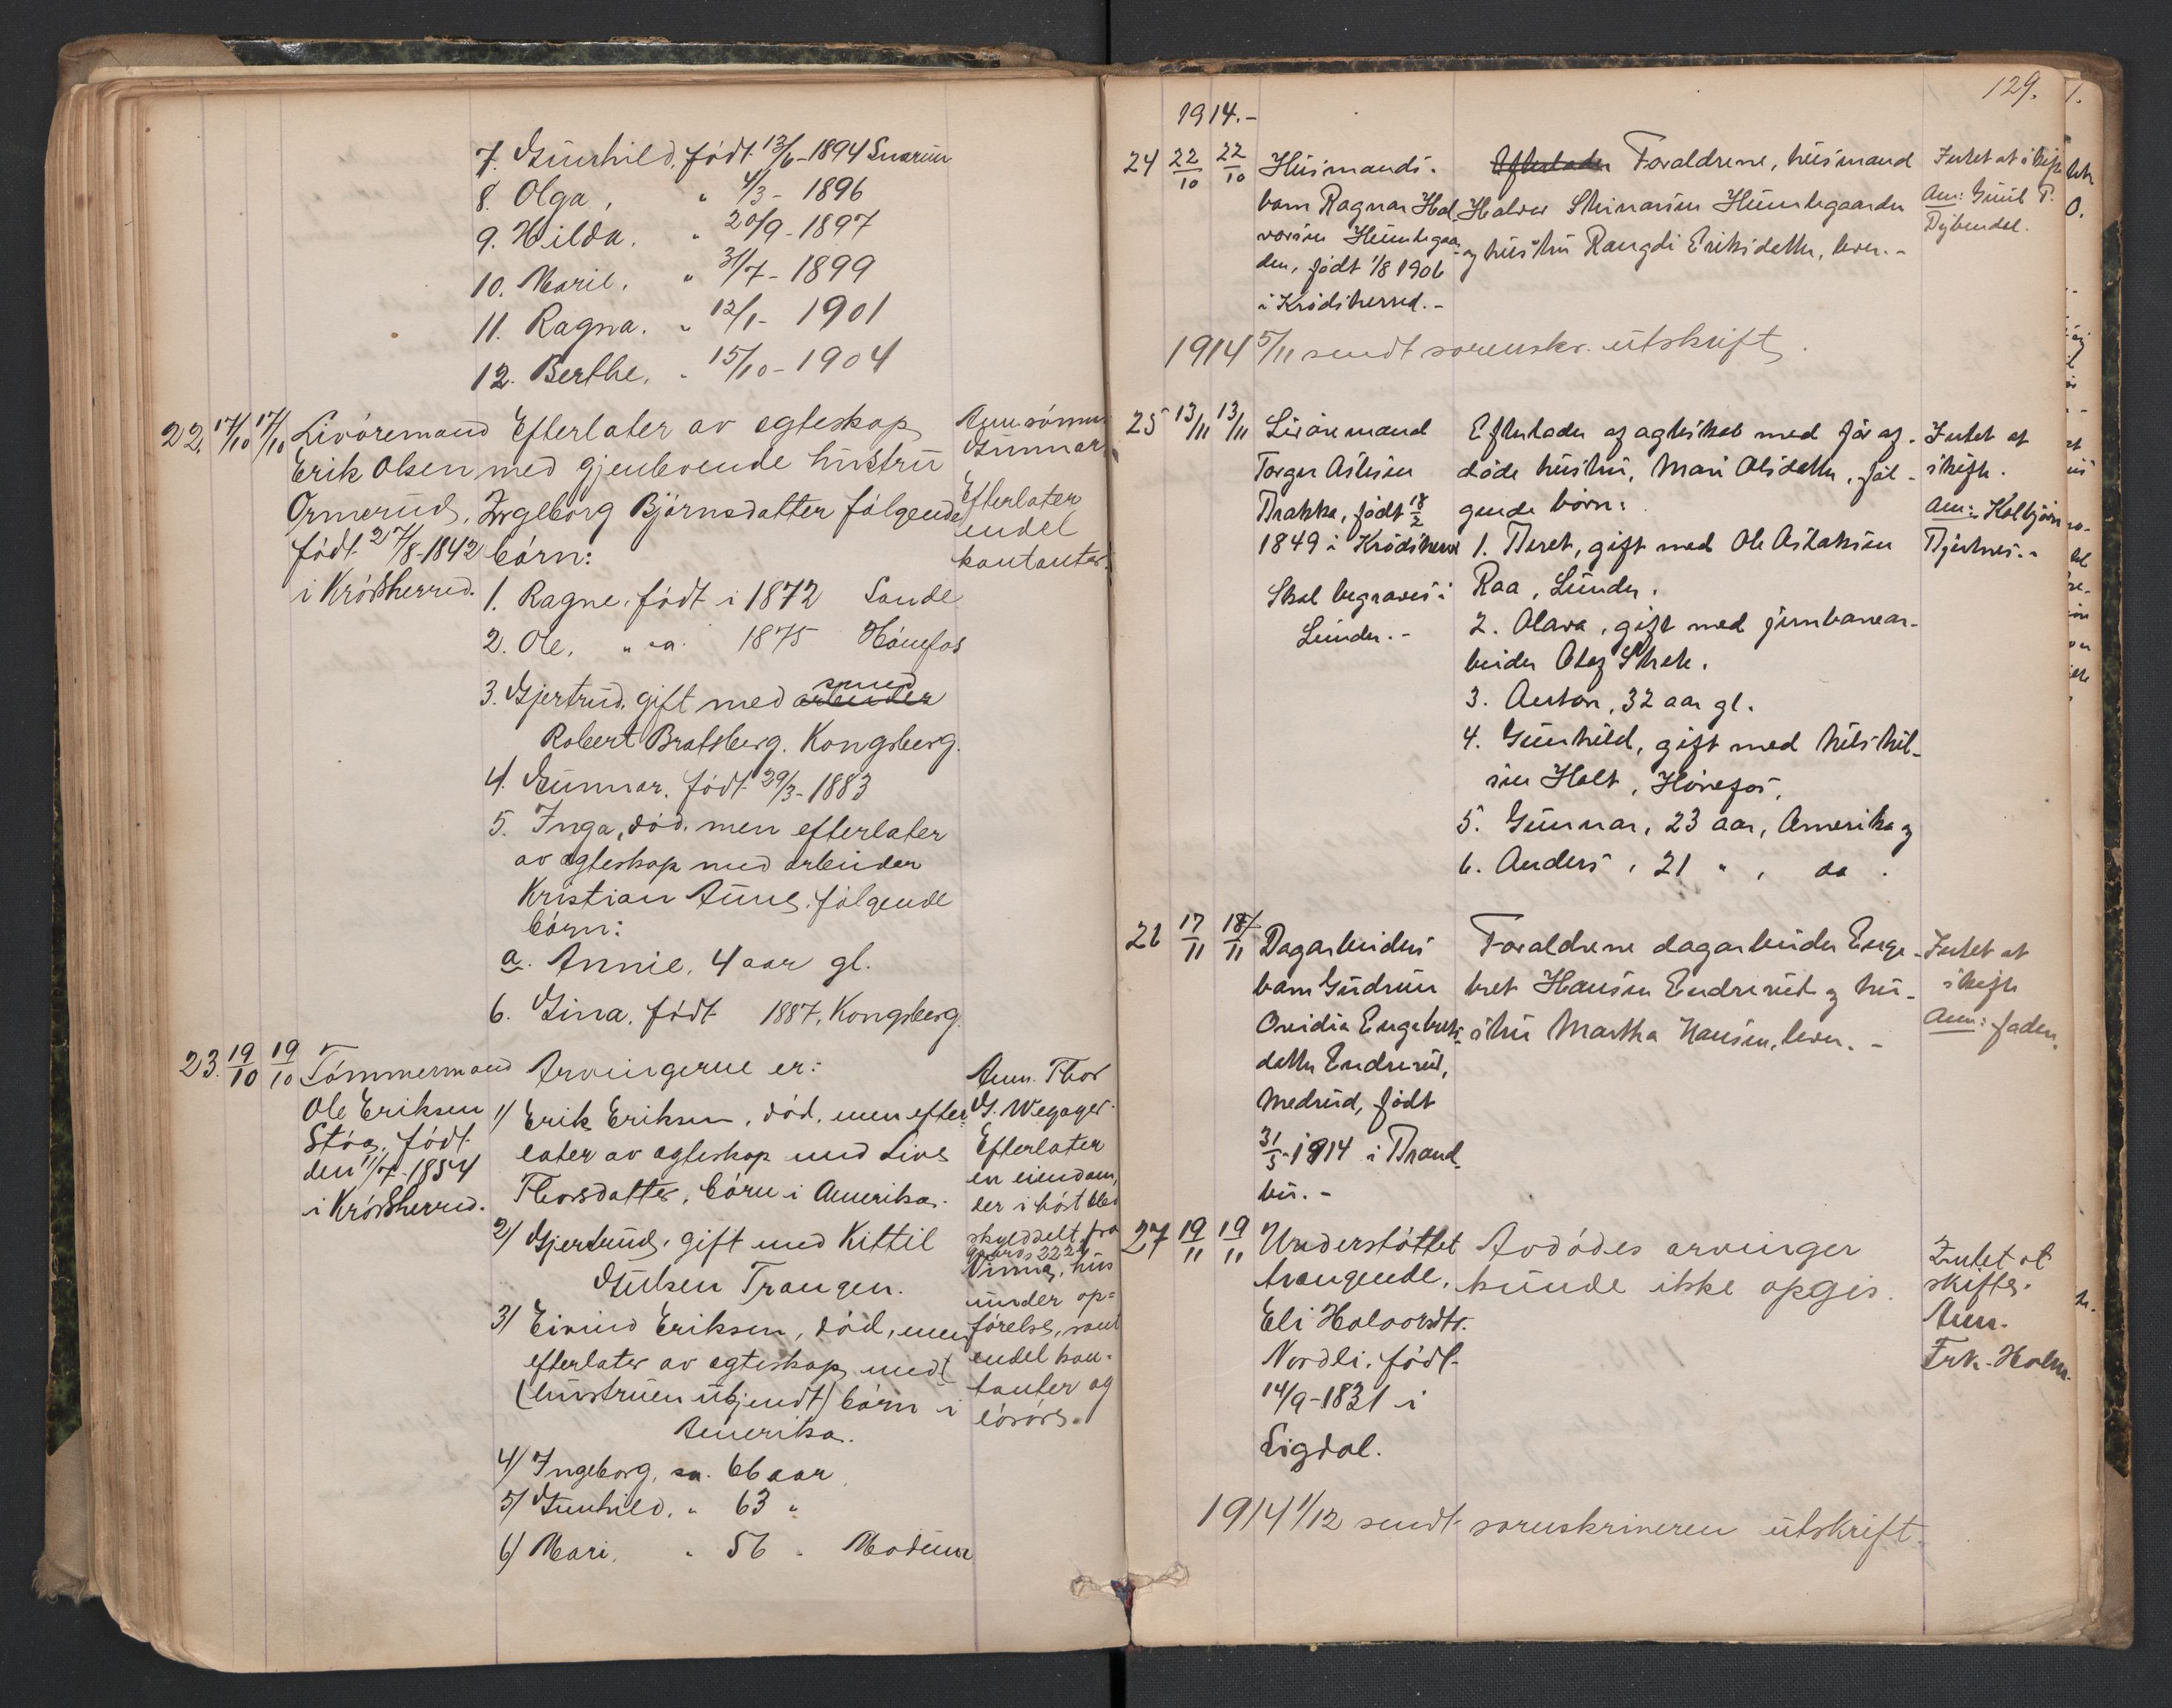 7. Gunhild, født 13/6-1894 Snarum
8. Olga, " 4/3- 1896
9. Hilda. " 20/9-1897
10. Marie. " 31/7- 1899
11. Ragna. " 12/1- 1901
12. Berthe. " 15/10-1904
22. 17/10 17/10 Livøremand Efterlater av egteskap Anm. sønnen
Erik Olsen med gjenlevende hustru Gunnar.
Ormerud, Ingleborg Bjørnsdatter følgende Efterlater
født 27/8-1842 børn: endel
i Krødsherred. kontanter.
1. Ragne, født i 1872 Sande
2. Ole, " ca. 1875 Hønefos
smed
3. Gjertrud, gift med arbeider
Robert Bratsberg. Kongsberg.
4. Gunnar, født 29/3-1883
5. Inga, død, men efterlater
av egteskap med arbeider
Kristian følgende
børn:
a. Annie, 4 aar gl.
6. Gina, født 1887, Kongsberg.
23. 19/10 19/10 Tømmermand Arvingerne er: Anm. Thor
Ole Eriksen 1) Erik Eriksen, død, men efter G. Wegager.
Støa, født later av egteskap med Live Efterlater
den 11/7-1854 Thorsdatter, børn i Amerika. en eiendom,
i Krødsherred. der i høst blev
2) Gjertrud, gift med Kittil skylddelt fra
gaards 22
Gulsen Trangen. hus
under op=
3) Eivind Eriksen, død, men førelse, samt
efterlater av egteskap med endel kon-
(hustruen ubjendt) børn i tanter og
Amerika. løsøre.
4) Ingeborg, ca. 66 aar
5) Gunhild, " 63 "
6) Mari, " 56 " Modum
129.
1914.-
24 22/10 22/10 Husmands- Efterlader Foraldrene, husmand Intet at skifte
barn Ragnar Hal- Halvor Steinarsen Humlegaarden Anm: Gunil P.
vorsen Humlegaar- og hustru Rangdi Eriksdatter, lever.- Dybendal.
den, født 1/8 1906
i Krødsherred.-
1914 5/11 sendt sorenskr. utskrift.
25 13/11 13/11 Livøremand Efterlader af agteskab med før af- Intet at
Torger Aslesen døde hustru, Mari Olsdatter, føl- skifte.
Brakka, født 18/2 gende børn: Anm: Kolbjørn
1849 i Krødsherred 1. Beret, gift med Ole Aslaksen
Skal begraves i Raa, Lunder.
Lunder.- 2. Olava, gift med jernbanear-
beider Olaf
3. Anton, 32 aar gl.
4. Gunhild, gift med Nils Nil-
sen Holt, Hønefos,
5. Gunnar, 23 aar, Amerika og
6. Anders, 21 " , do .
26 17/11 18/11 Dagarbeiders Foraldrene dagarbeider Enge- Intet at
barn Gudrun bret Hansen Endrerud og hu- skifte
Ovidia Engebrets- stru Martha Hansen, lever.- Anm: faderen.
datter Endrerud,
Medrud, født
31/5-1914 i Brand-
bu.-
27 19/11 19/11 Understøttet Avdødes arvinger Intet at
trængende, kunde ikke opgis. skifte.
Eli Halvorsdtr. Anm.
Nordli, født Frk. Holm.
14/9-1831 i
Sigdal.
1914 1/12 sendt sorenskriveren utskrift.